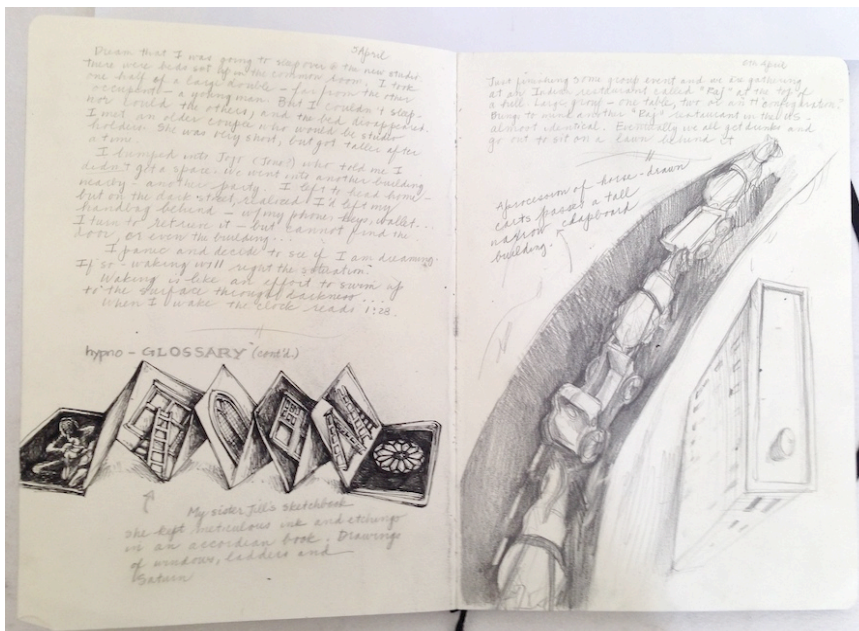 5 April
Dream that I was going to sleep over @ the new studio.
There were beds set up in the common room. I took
one half of a large double - far from the other
occupants - a young man. But I couldn't sleep -
nor could the others, and the bed disappeared.
I met an older couple who would be studio
holders. She was very short, but got taller after
a time.
I bumped into Jojo (Jones?) who told me I
didn't get a space. We went into another building
nearby - another party. I left to head home -
but on the dark street, realized I'd left my
handbag behind - w/ my phone, keys, wallet...
I turn to retrun it - but cannot find the
door, or even the building...
I panic and decide to see if I am dreaming.
If so - waking will right the situation.
Waking is like an effort to swim up
to the surface through darkness...
When I wake the clock reads 1:28.
hypno - GLOSSARY (cont'd.)
My sister Jill's sketchbook
She kept meticulous ink and etchings
in an accordian book. Drawings
of windows, ladders and
Saturn
April
Just finishing some group event and we are gathering
at an Indian restaurant called "Raj" at the top of
a hill. Large group - one table, two or an
Bring to mind another "Raj" restaurant in the US -
almost identical. Eventually we all get drinks and
go out to sit on a lawn behind it
A procession of horse-drawn
carts passes a tall
narrow clapboard
building.